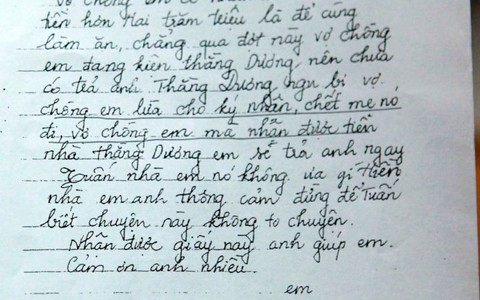 vợ chồng em có
tiền hơn Hai trăm triệu là để cùng
làm ăn, chẳng qua đợt này vợ chồng
em đang kiện thằng Dương, nên chưa
có trả anh. Thằng Dương ngu bị vợ
chồng em lừa cho ký nhân, chết mẹ nó
đi, vợ chồng em mà nhân được tiền
nhà thằng Dương em sẽ trả anh ngay
Tuấn nhà em nó không ưa gì Hiền
nhà em anh thông cảm đừng để Tuấn
biết chuyện này không to chuyện.
Nhân được giấy này anh giúp em.
Cảm ơn anh nhiều
em